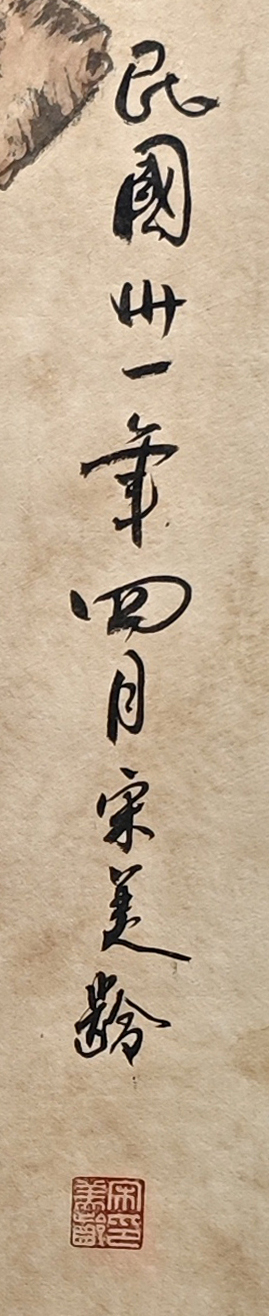 民國卅一年四月宋美齡
宋美齡印